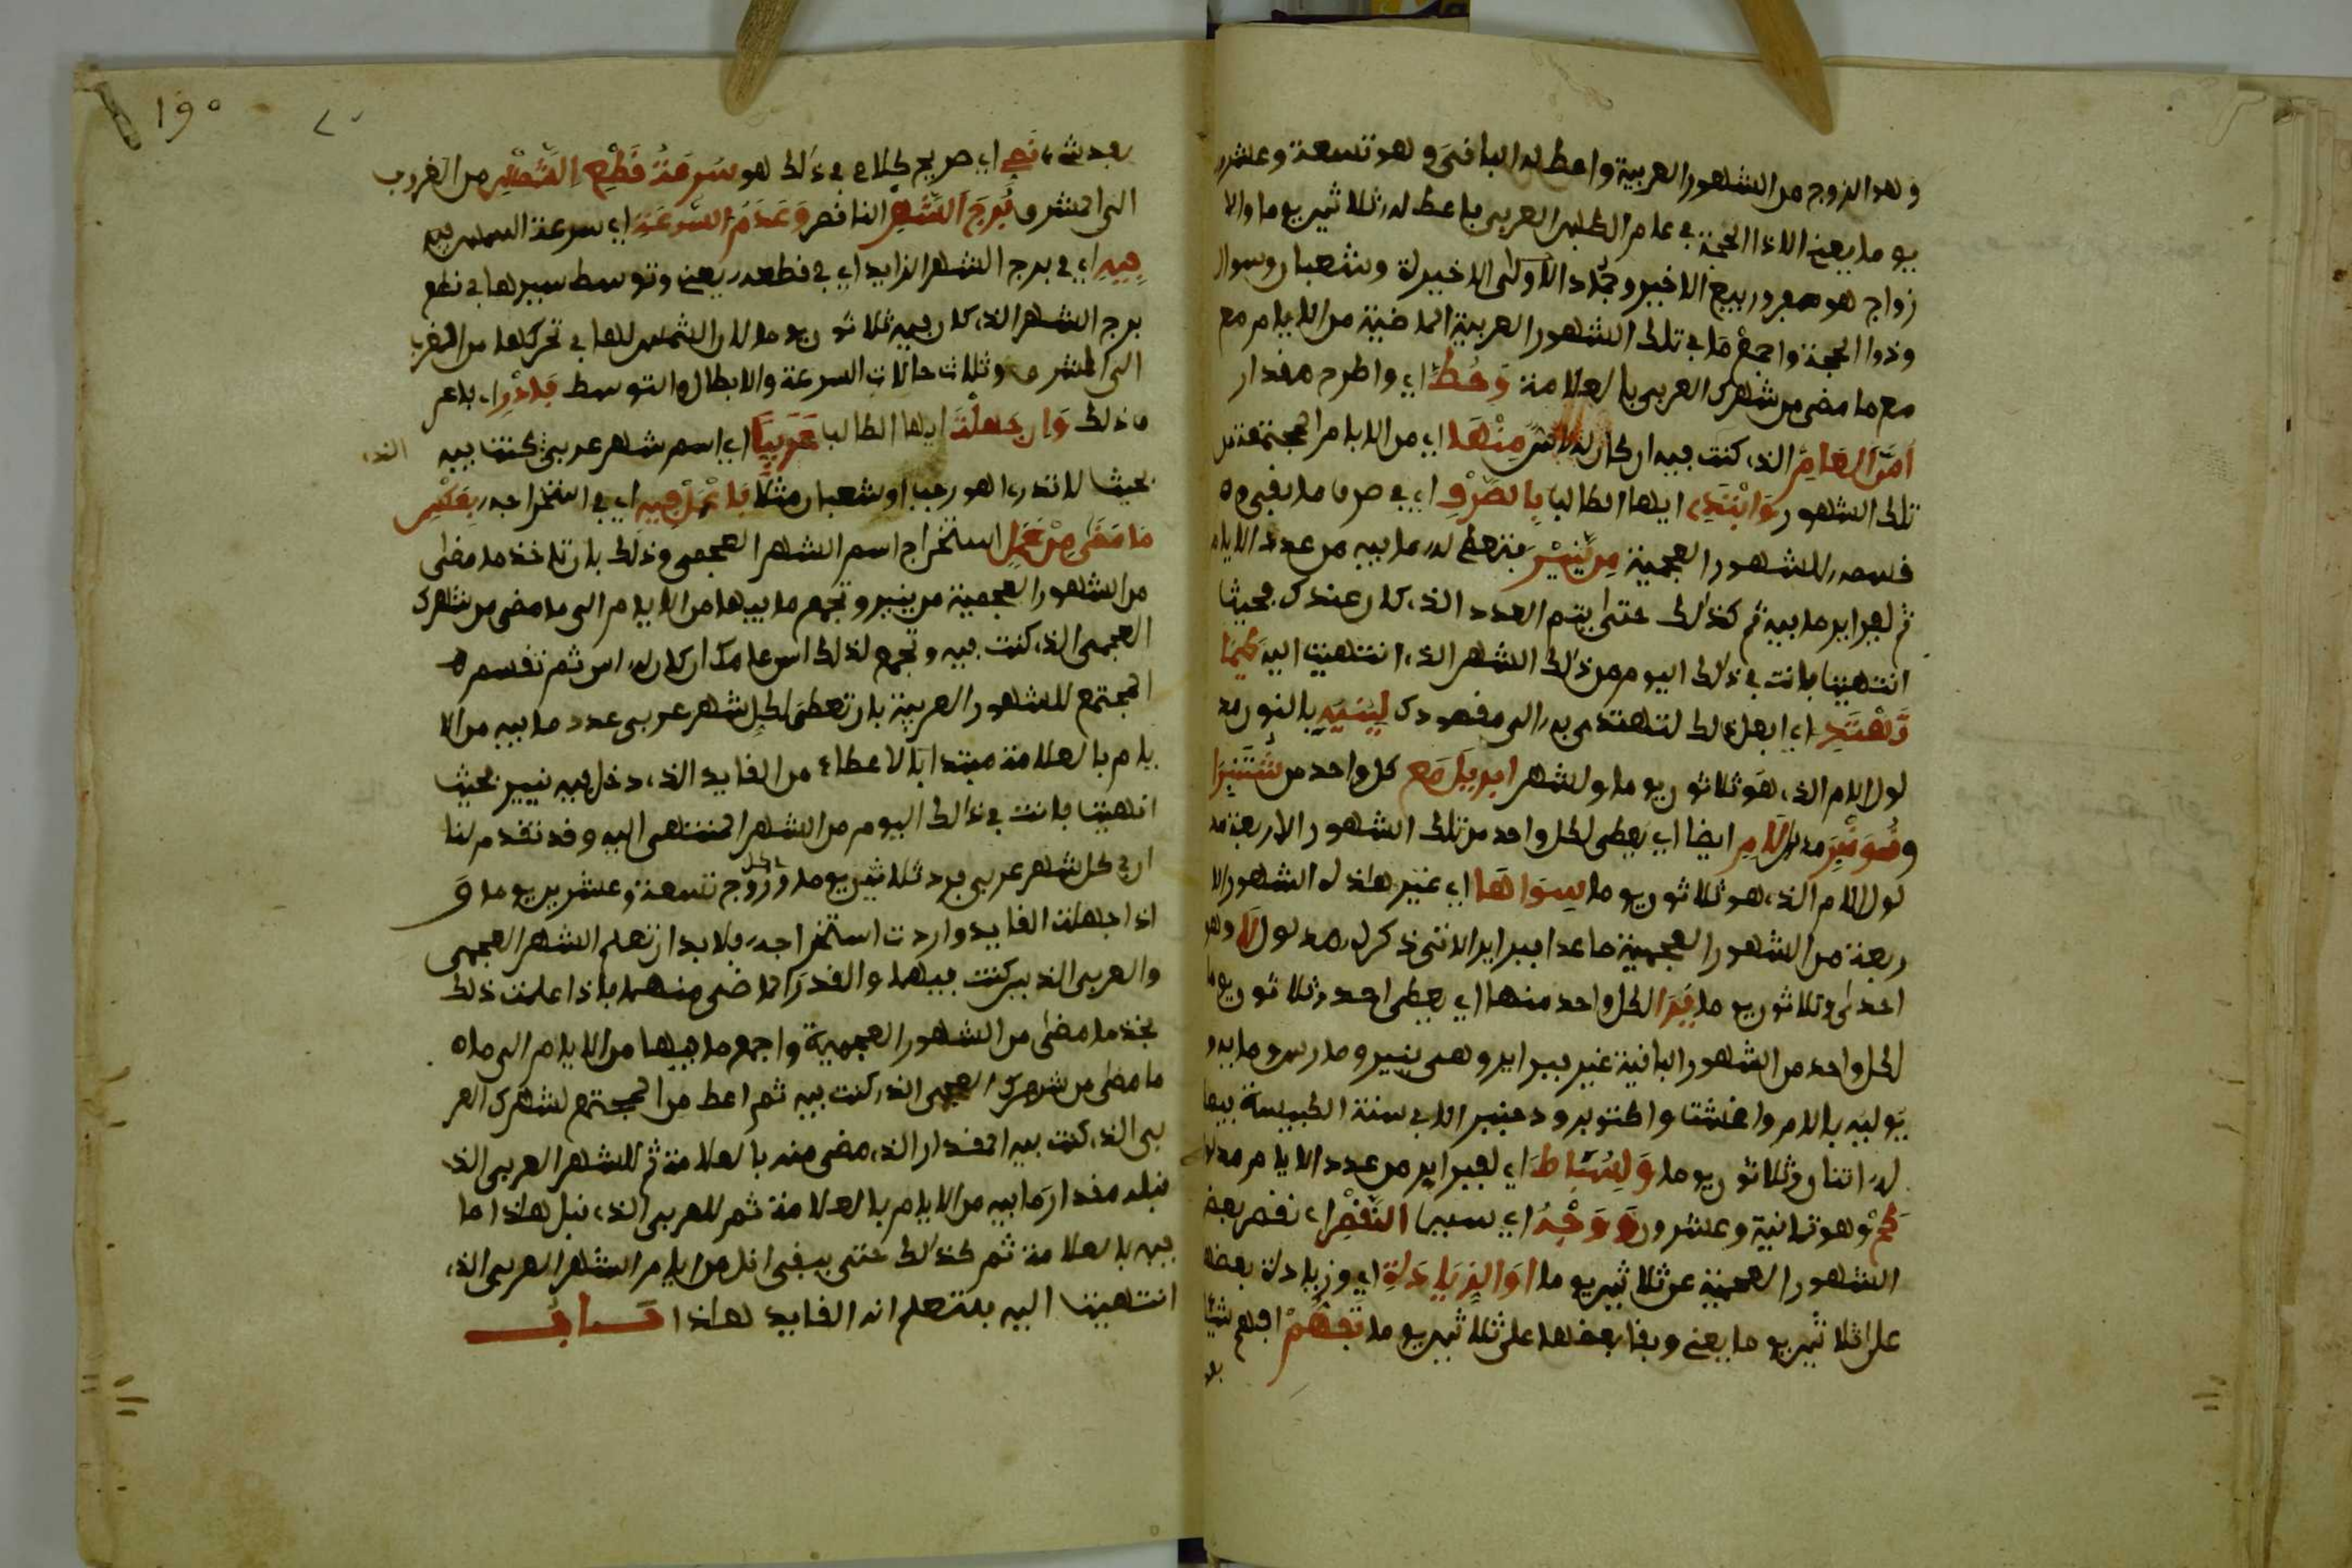 وهو الزوج من الشهور العربية واعط له الباقى وهو تسعة وعشرو
يوما يعني الا ذا الحجة في عام الكبس العربي باعط له ثلاثين يوما والا
زواج هو صفر وربيع الاخير وجماد الاولى الاخيرة وشعبان وشوال
وذو الحجة واجمع ما في تلك الشهور العربية الماضية من الايام مع
مع ما مضى من شهرك العربي بالعلامة وحط اي واطرح مقدار
اس العام الذي كنت فيه ان كان له اس منها اي من الايام المجتمعة من
تلك الشهور وابتدي ايها الطالب بالصرف اي في صرف ما بقى وه
قسمه للشهور العجمية من نيير فتعط له ما فيه من عدد الايام
ثم لفبراير ما فيه ثم كذلك حتى يتم العدد الذي كان عندك فحيث
انتهيت فانت في ذلك اليوم من ذلك الشهر الذي انتهيت اليه كيما
تهتد اي افعل ذلك لتهتدي به الى مقصودك لينيه بالنون مد
لول اللام الذي هو ثلاثون يوما ولشهر ابريل مع كل واحد من شتنبرا
ونونبر مد لام ايضا اي يعطى لكل واحد من تلك الشهور الاربعة مد
لول اللام الذي هو ثلاثون يوما سواها اي غير هاذه الشهور الا
ربعة من الشهور العجمية ما عدا فبراير الاتي ذكره مدلول لا وهو
احدى وثلاثون يوما يرا لكل واحد منها اي يعطى احد وثلاثون يوما
لكل واحد من الشهور الباقية غير فبراير وهي ينير ومارس ومايه و
يوليه باللام واغشت واكتوبر ودجنبر الا في سنة الكبيسة فيها
له اثنان وثلاثون يوما ولشباط اي لفبراير من عدد الايام مدلول
كح وهو ثمانية وعشرون ووجه اي سبب النقص اي نقص بعض
الشهور العجمية عن ثلاثين يوما او الزيادة اي وزيادة بعضها
على ثلاثين يوما يعني وبقا بعضها على ثلاثين يوما تفهم افهم شيا
بعد
190
بعد شيء نص اي صريح كلامي في ذلك هو سرعة قطع الشمس من الغروب
الى المشرق برج الشهر الناقص وعدم السرعة اي سرعة الشمس فيه
فيه اي في برج الشهر الزايد اي في قطعه يعني وتوسط سيرها في قطع
برج الشهر الذي كان فيه ثلاثون يوما لان الشمس لها في تحركها من المغرب
الى المشرق ثلاث حالات السرعة والابطال والتوسط فادر اي باعر
ف ذلك وان جهلت ايها الطالب عربيا اي اسم شهر عربي كنت فيه الذي
بحيث لا تدري اهو رجب او شعبان مثلا فاعمل فيه اي في استخراجه بعكس
ما مضى من عمل استخراج اسم الشهر العجمي وذلك بان تاخذ ما مضى
من الشهور العجمية من ينير وتجمع ما فيها من الايام الى ما مضى من شهرك
العجمي الذي كنت فيه وتجمع لذلك اس عامك ان كان له اس ثم تقسم
المجتمع للشهور العربية بان تعطى لكل شهر عربي عدد ما فيه من الا
يام بالعلامة مبتدا بالاعطاء من القايد الذي دخل فيه نيير بحيث
انتهيت فانت في ذالك اليوم من الشهر المنتهى اليه وقد تقدم لنا
ان في كل شهر عربي فرد ثلاثين يوما وكل زوج تسعة وعشرين يوما و
اذا جهلت القايد واردت استخراجه فلا بد ان تعلم الشهر العجمي
والعربي الذين كنت فيهما والقدر الماضي منهما باذا علمت ذلك
فخذ ما مضى من الشهور العجمية واجمع ما فيها من الايام الى ما
ما مضى من شهرك العجمي الذي كنت فيه ثم اعط من المجتمع لشهرك العر
بي الذي كنت فيه المقدار الذي مضى منه بالعلامة ثم للشهر العربي الذي
قبله مقدار ما فيه من الايام بالعلامة ثم للعربي الذي قبل هاذا ما
فيه بالعلامة ثم كذلك حتى يبقى اقل من ايام الشهر العربي الذي
انتهيت اليه فلتعلم انه القايد هاذا